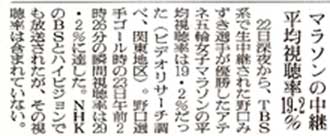 マラソンの中継
平均視聴率19.2%
22日深夜から、TBS
系で生中継された野口み
ずき選手が優勝したアテ
ネ五輪女子マラソンの平
均視聴率は19・2%だっ
た（ビデオリサーチ調
べ、関東地区）。野口選
手ゴール時の23日午前2
時26分の瞬間視聴率は29
・2%に達した。NHK
のBSとハイビジョンで
も放送されたが、その視
聴率は含まれていない。